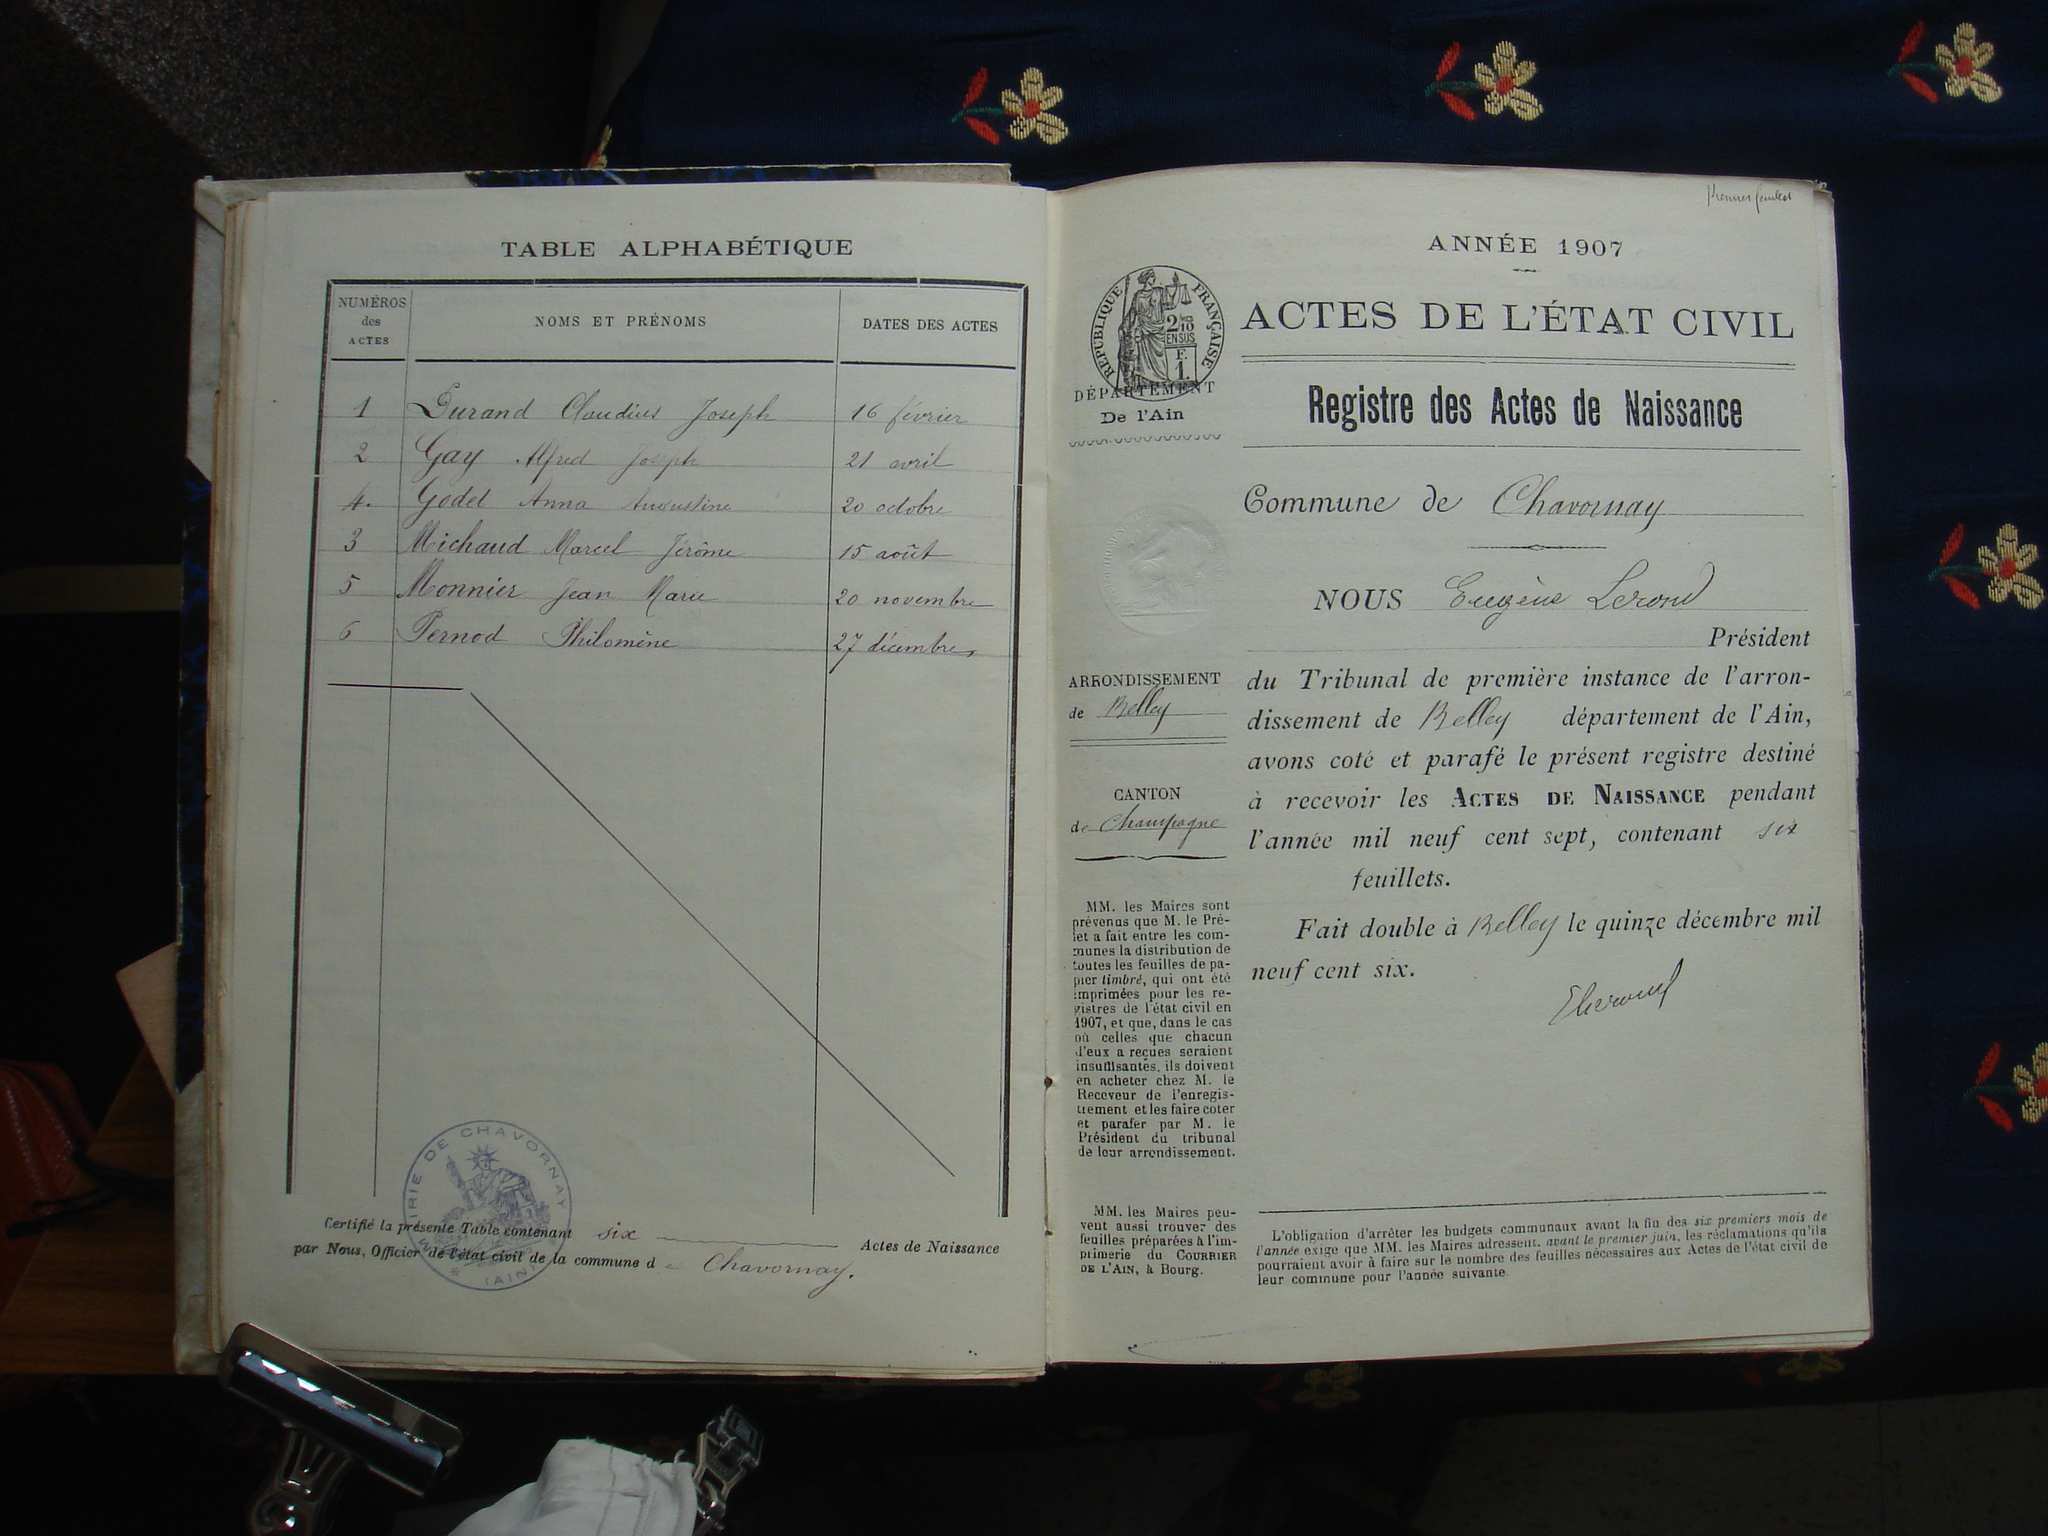 TABLE ALPHABÉTIQUE
NUMÉROS des ACTES
NOMS ET PRÉNOMS
DATES DES ACTES
1 Durand Claudius Joseph 16 février
2 Gay Alfred Joseph 21 avril
4. Godet Anna Augustine 20 octobre
3 Michaud Marcel Jérôme 15 août
5 Monnier Jean Marie 20 novembre
6 Pernod Philomène 27 décembre
MAIRIE DE CHAVORNAY
(AIN)
Certifié la présente Table contenant six Actes de Naissance
par Nous, Officier de l'état civil de la commune de Chavornay.
Premier feuillet
ANNÉE 1907
RÉPUBLIQUE FRANÇAISE
2/10
EN SUS
F.
1.
ACTES DE L'ÉTAT CIVIL
DÉPARTEMENT
De l'Ain
Registre des Actes de Naissance
Commune de Chavornay
NOUS Eugène Lerond
Président
ARRONDISSEMENT
de Belley
du Tribunal de première instance de l'arron-
dissement de Belley département de l'Ain,
avons coté et parafé le présent registre destiné
à recevoir les ACTES DE NAISSANCE pendant
l'année mil neuf cent sept, contenant six
feuillets.
CANTON
de Champagne
Fait double à Belley le quinze décembre mil
neuf cent six.
MM. les Maires sont
prévenus que M. le Pré-
fet a fait entre les com-
munes la distribution de
toutes les feuilles de pa-
pier timbré, qui ont été
imprimées pour les re-
gistres de l'état civil en
1907, et que, dans le cas
où celles que chacun
d'eux a reçues seraient
insuffisantes, ils doivent
en acheter chez M. le
Receveur de l'enregis-
trement et les faire coter
et parafer par M. le
Président du tribunal
de leur arrondissement.
MM. les Maires peu-
vent aussi trouver des
feuilles préparées à l'im-
primerie du COURRIER
DE L'AIN, à Bourg.
L'obligation d'arrêter les budgets communaux avant la fin des six premiers mois de
l'année exige que MM. les Maires adressent, avant le premier juin, les réclamations qu'ils
pourraient avoir à faire sur le nombre des feuilles nécessaires aux Actes de l'état civil de
leur commune pour l'année suivante.